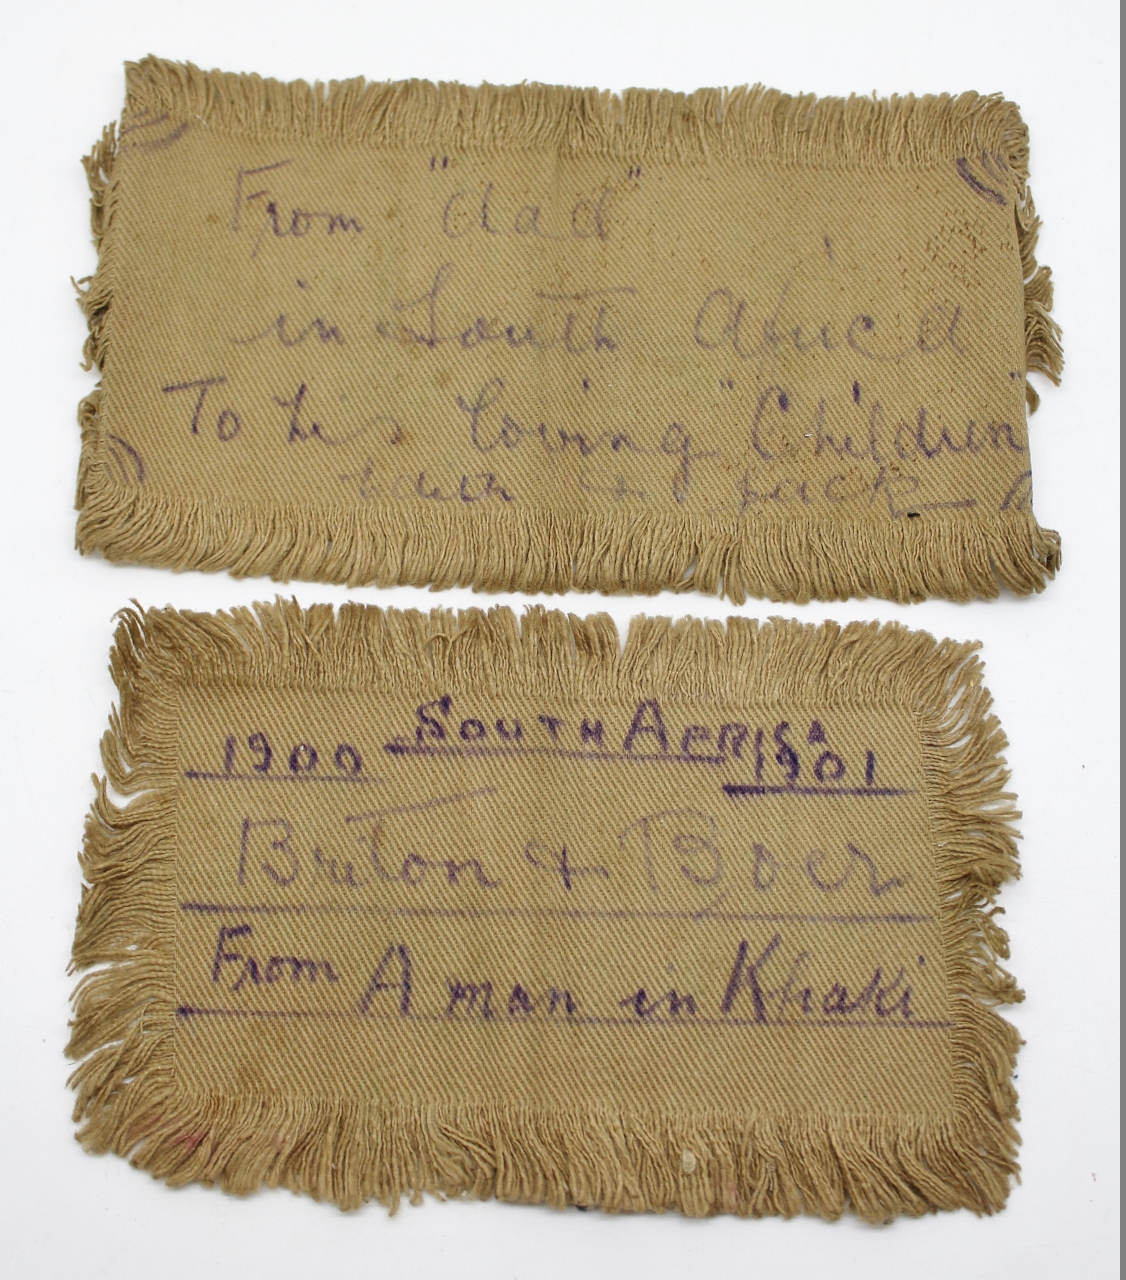 From "dad"
in South Africa
To his loving "Children"
& Jack
SOUTH AFRICA
1900 1901
Briton & Boer
From A man in Khaki